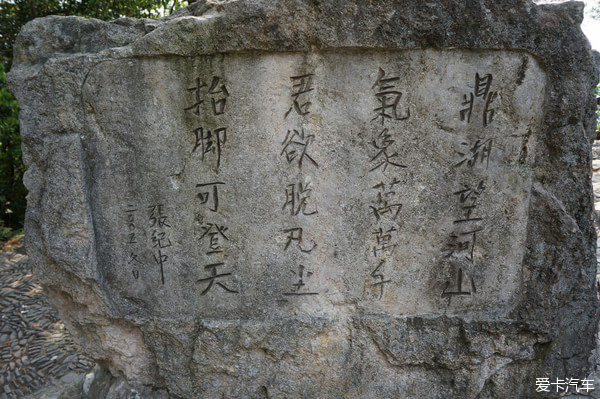 鼎湖望河山
氣象萬萬千
君欲脫凡尘
抬脚可登天
張紀中
爱卡汽车